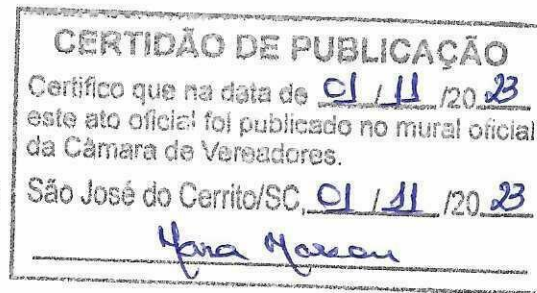 CERTIDÃO DE PUBLICAÇÃO
Certifico que na data de 01 / 11 /20 23
este ato oficial foi publicado no mural oficial
da Câmara de Vereadores.
São José do Cerrito/SC, 01 / 11 /20 23
Mara